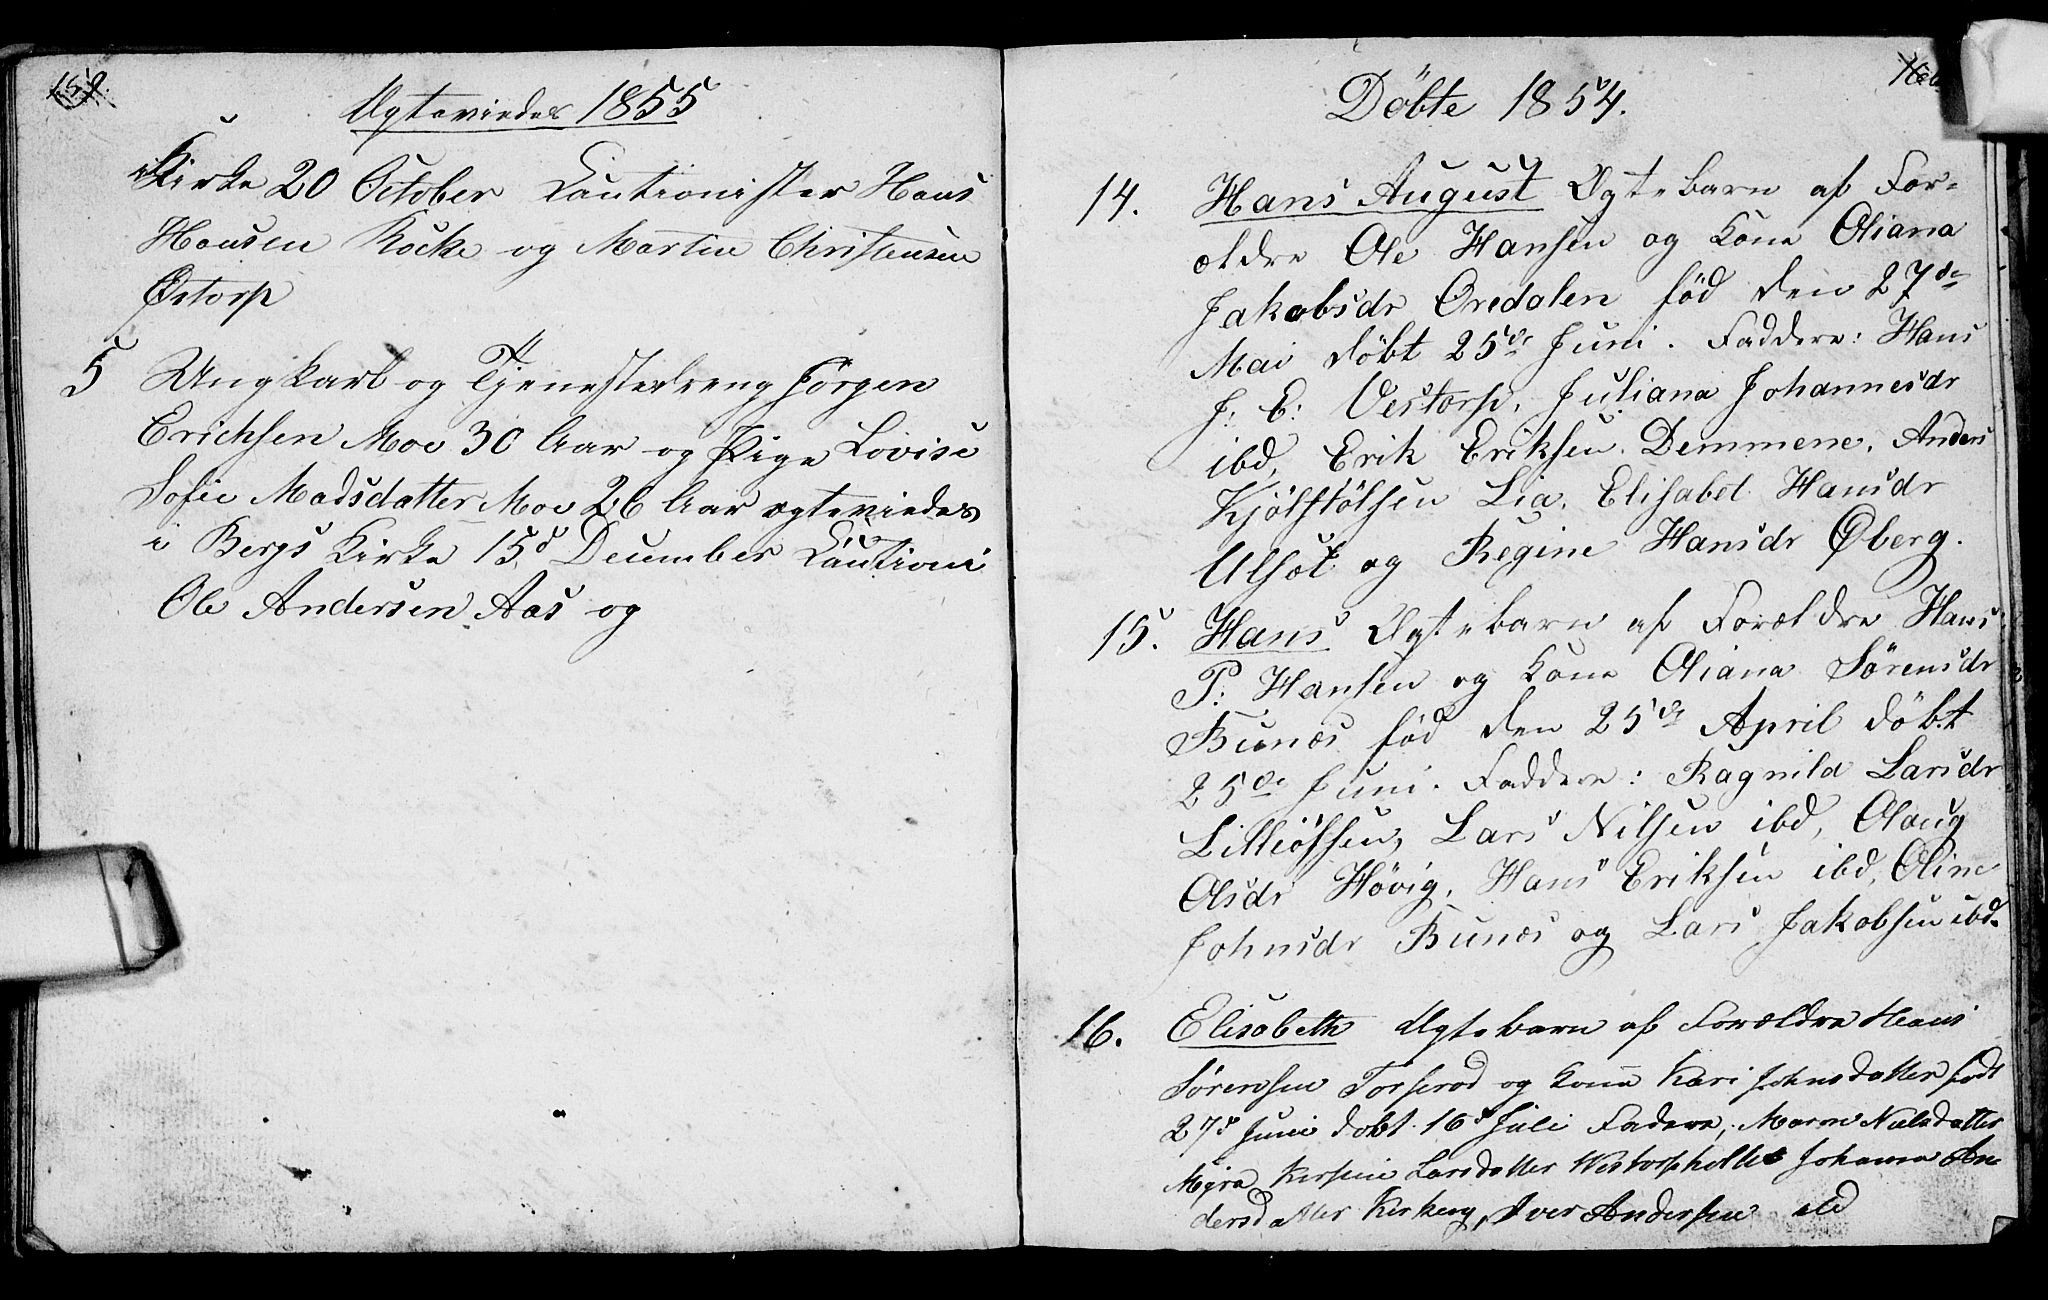 159.
Ægteviedes 1855
Kirke 20 October Cautionister Hans
Hansen Kocke og Martin Christensen
Østorp
5 Ungkarl og Tjenestedreng Jørgen
Erichsen Moe 30 Aar og Pige Lovise
Sofie Madsdatter Moe 26 Aar ægteviedes
i Bergs Kirke 15d December Cautioni
Ole Andersen Aas og
Döbte 1854.
14. Hans August Ægtebarn af For-
ældre Ole Hansen og Kone Oliana
Jakobsdr Oredalen föd den 27de
Mai döbt 25de Juni. Faddere: Hans
J: E: Vestorp, Juliana Johannesdr
ibd, Erik Eriksen Demmene, Anders
Kjölstölsen Lia, Elisabet Hansdr
Ulsöt og Regine Hansdr Öberg.
15. Hans Ægtebarn af Forældre Hans
P: Hansen og Kone Oliana Sörensdr
Bunæs föd den 25de April döbt
25de Juni. Faddere: Ragnild Larsdr
Lars Nilsen ibd, Olaug
Olsdr Hövig, Hans Eriksen ibd, Oline
Johnsdr Bunæs og Lars Jakobsen ibd.
16. Elisabeth Ægtebarn af Forældre Hans
Sörensen Torperöd og Kone Kari Johnsdatter född
27d Juni döbt 16d Juli Fadere, Maren Nielsdatter
Myra Larsdatter Westorp Johanna An-
dersdatter Kirkeng, Iver Andersen